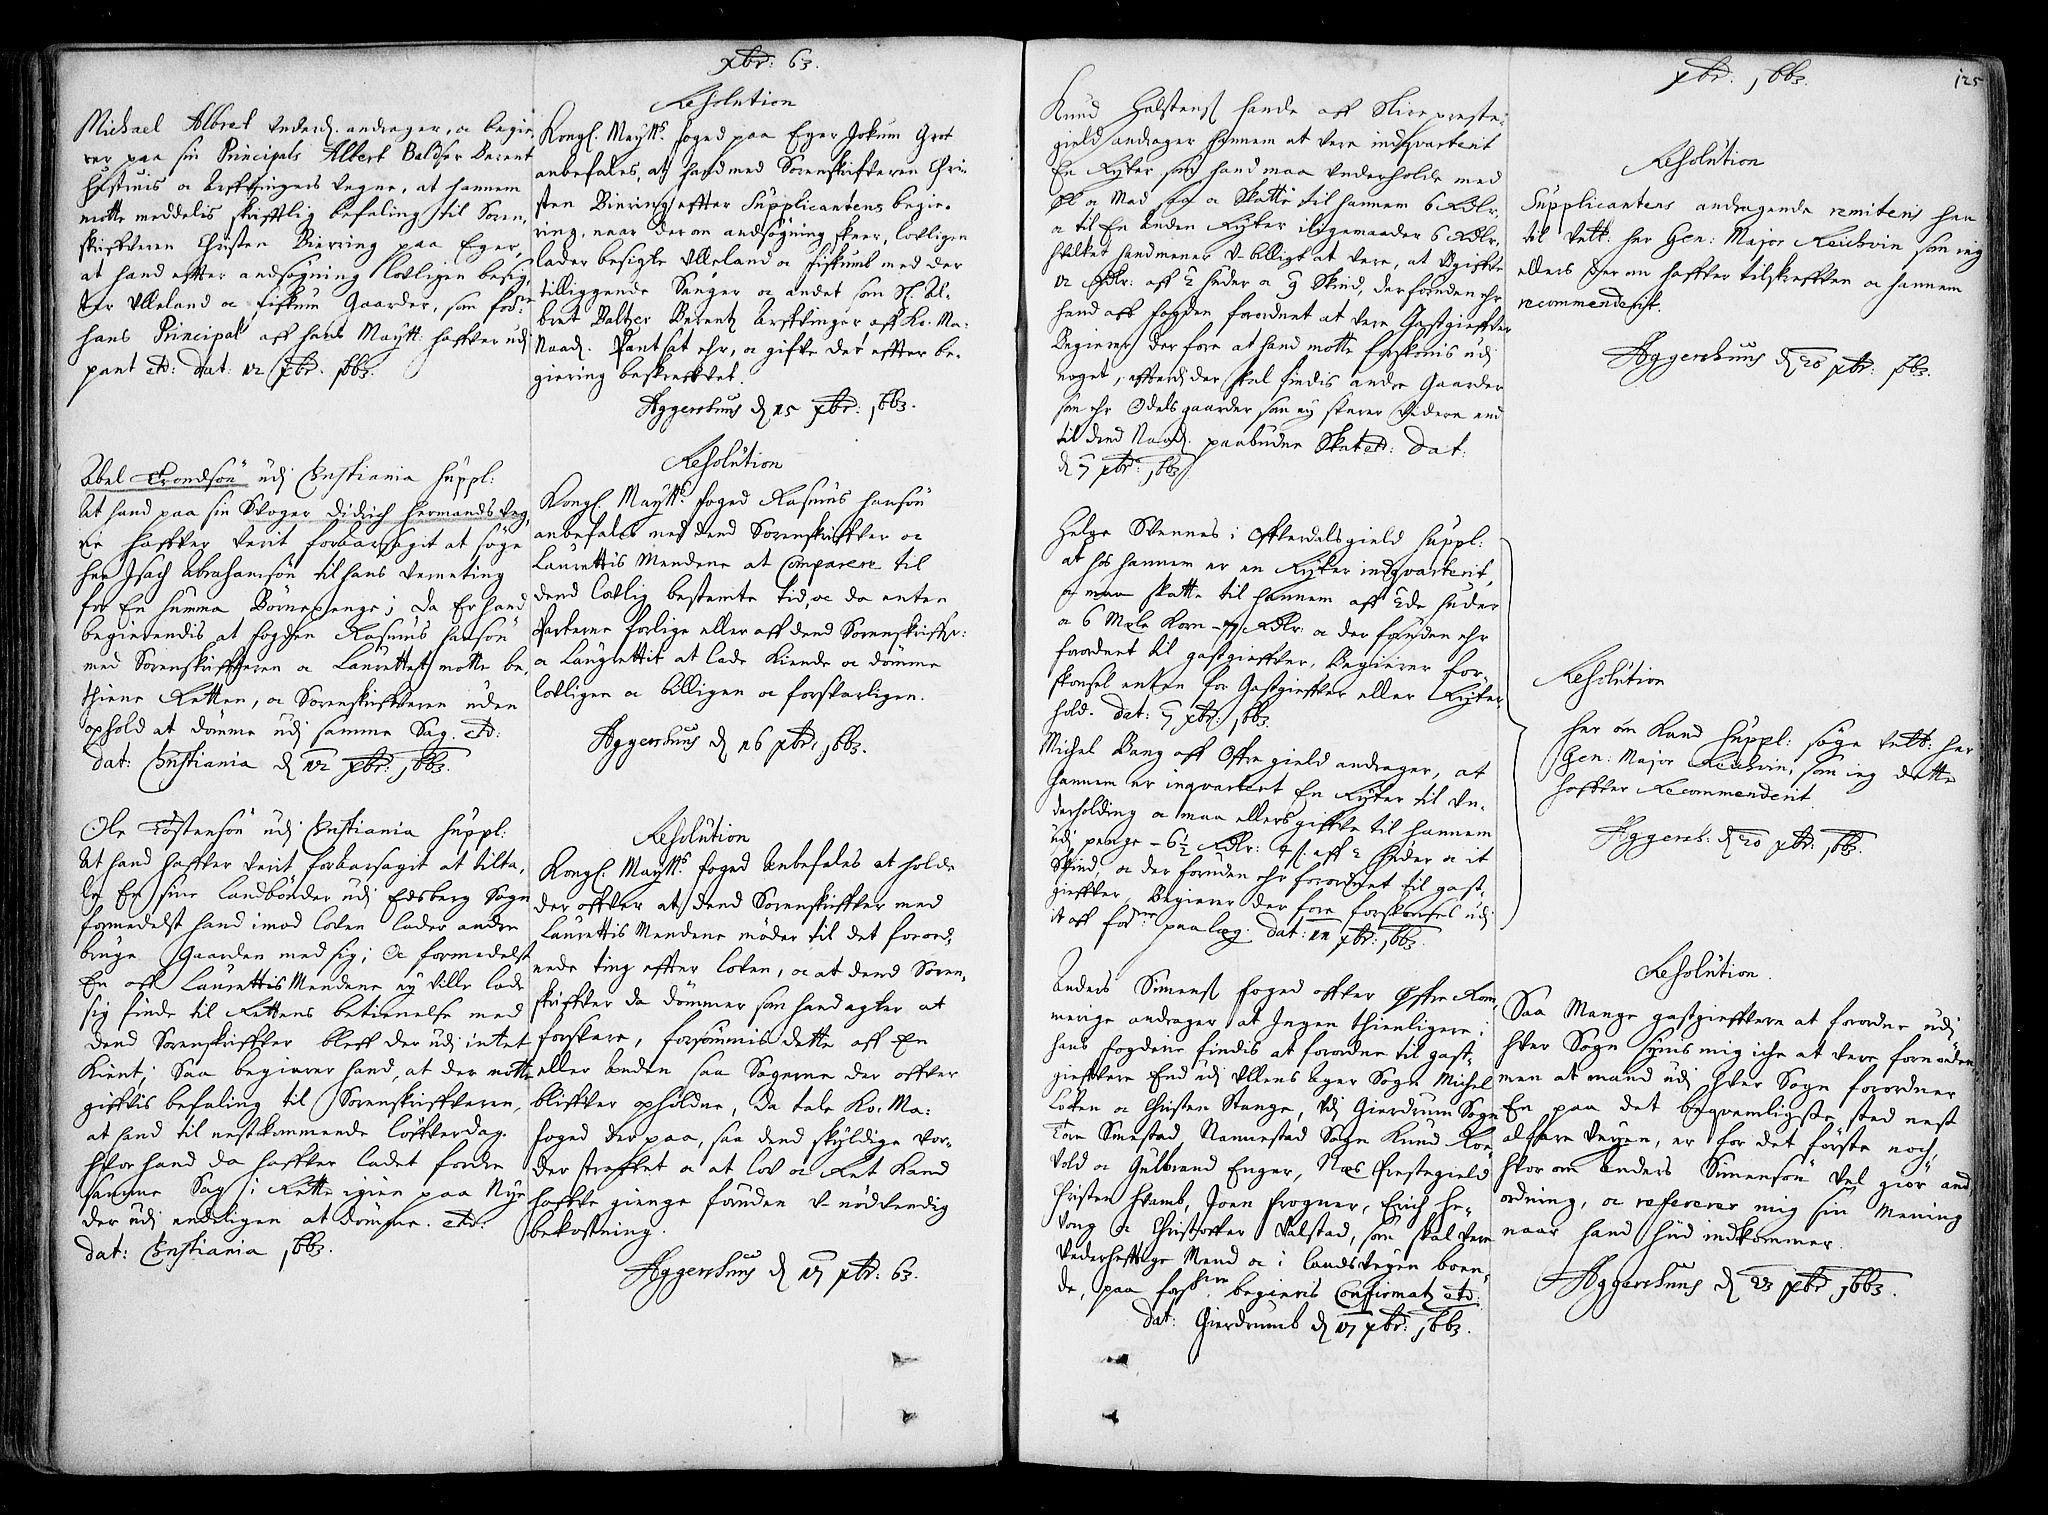 xbr: 63.
Michael Albret underd. andrager, oc begie,
rer paa sin Principals Albert Baldser Berent
hustruis oc Arffvingers vegne, at hannem
motte meddelis skrifftlig befaling til Soren,
skriffveren Christen Bierring paa Eger,
at hand effter andsøgning lovligen besig,
ter Ulleland oc Fiskum Gaarder, som for:ne
hans Principal aff hans Maytt: haffver udj
pant etc: dat: 12 xbr: 1663.
Resolution
Kongl. Maytts. foged paa Eger Jokum Grot
anbefales, at hand med Sorenskriffveren Chri-
sten Bierring effter Supplicantens begie-
ring, naar derom andsøgning skeer, lovligen
lader besigte Ulleland oc Fiskumb med der
tilliggende Senger oc andet som Sl. Al-
bret Baltzer Berentz Arffvinger aff Ko. Ma:
Naad. Pantsat ehr, oc giffve det effter be-
giering beskreffvet.
Aggershuus d 15 xbr: 1663.
Abel Trondsön udj Christiania suppl:
At hand paa sin Svoger Didrich Hermands veg,
ne haffver verit foraarsagit at søge
her Isach Abrahamsön til hans verneting
for En summa Børnepenge; Da Er hand
begierendis at fogden Rasmus hansön
med Sorenskriffveren oc Laurettet motte be,
thiene Retten, oc Sorenskriffveren uden
ophold at dømme udj samme Sag. etc:
dat: Christiania d 12 xbr: 1663.
Resolution
Kongl. Maytts. foged Rasmus hansön
anbefales med dend Sorenskriffver oc
Laurettis Mendene at Comparere til
dend lovlig bestemte tid, oc da enten
Parterne forlige eller aff dend Sorenskriffr:
oc Laugrettit at lade kiende oc dømme
lovligen oc billigen oc forsvarligen.
Aggershuus d 16 xbr: 1663.
Ole Tostensön udj Christiania suppl:
At hand haffver verit foraarsagit at tilta,
le En sine Landbønder udj Edsberg Sogn
formedelst hand imod loven lader andre
bruge Gaarden med sig; Oc formedelst
En aff Laurettis Mendene ey ville lade
sig finde til Rettens betienelse med
dend Sorenskriffver bleff der udj intet
kient; Saa begierer hand, at der motte
giffvis befaling til Sorenskriffveren,
at hand til nestkommende løffverdag
hvor hand da haffver ladet fordre
samme Sag i Rette igien paa Nye
der udj endeligen at dømme. etc:
dat: Christiania 1663.
Resolution
Kongl. Maytts. foged Anbefales at holde
der offver at dend Sorenskriffver med
Laurettis Mendene møder til det forord,
nede ting effter loven, oc at dend Soren-
skriffver da dømmer som hand agter at
forsvare, forsømmis dette aff En
eller Anden saa Sagerne der offver
bliffver opholdne, da tale Ko: Ma:
foged der paa, saa dend skyldige vor-
der straffet oc at lov oc Ret kand
haffve gienge foruden U-nødvendig
bekostning.
Aggershuus d 17 xbr: 63.
xbr: 1663.
125
Knud Halstens hande aff Slire preste-
gield andrager hannem at vere indqvarterit
En Ryter som hand maa underholde med
Øl oc Mad oc Skatte til hannem 6 Rdlr.
oc til En Anden Ryter iligemaader 6 Rdlr.
hvilket hand mener U-billigt at vere, at Udgiffve
12 Rdlr: aff 2 huder oc 9 Skind, der foruden ehr
hand aff fogden forordnet at vere Gastgieffver
Begierer der fore at hand motte forskonis udj
noget, efftersom der skal findis andre Gaarder
som ehr Odelsgaarder som ey svarer videre end
til dend Naad. paabudne Skat etc: dat:
d 7 xbr: 1663.
Resolution
Supplicantens andragende remiteris her
til Velb: her Gen: Major Reichvin som ieg
ellers der om haffver tilskreffven oc hannem
recommenderit.
Aggershuus d 20 xbr: 1663.
Helge Svennes i Offverdals gield suppl:
at hos hannem er en Ryter indqvarterit,
oc maa skatte til hannem aff 2de huder
oc 6 Mele korn - 7 Rdlr: oc der foruden ehr
forordnet til gastgieffver, Begierer for-
skonsel enten for Gastgieffver eller Ryter
hold. dat: 7 xbr: 1663.
Michel Bang aff Offre gield andrager, at
hannem er inqvartert En Ryter til un-
derholding oc maa ellers giffve til hannem
udj penge - 6½ Rdlr: aff 2 huder oc it
Skind, oc der foruden ehr forordnet til gast-
gieffver, Begierer der fore forskonsel udj
it aff for:ne paaleg. dat: 12 xbr: 1663.
Resolution
her om kand suppl: søge Velb: her
Gen: Major Reichvin, som ieg dette
haffver Recommenderit.
Aggersh. d 20 xbr: 1663.
Anders Simens foged offver Øffre Rom,
merige andrager at Ingen thienligere i
hans fogderie findis at forordne til gast-
gieffvere End udj Ullens Ager Sogn Michel
Loken oc Christen Stange, udj Gierdrum Sogn
Tore Smestad, Nannestad Sogn Knud Koe,
vold oc Gulbrand Enger, Nes Prestegield
Christen Hvamb, Joen Frogner, Erich He-
vong oc Christoffer Valstad, som skal vere
Vederhefftige Mend oc i Landsveyen boen,
de, paa forsk:ne begieris Confirmatz etc:
dat: Gierdrumb d 17 xbr: 1663.
Resolution.
Saa Mange gastgieffvere at forordne udj
hver Sogn synis mig iche at vere fornøden
men at mand udj hver Sogn forordner
En paa det beqvemligste sted nest
alfare veyen, er for det første noch,
hvor om Anders Simensön vel giør and,
ordning, oc refererer mig sin Mening
naar hand hid indkommer.
Aggershuus d 23 xbr 1663.